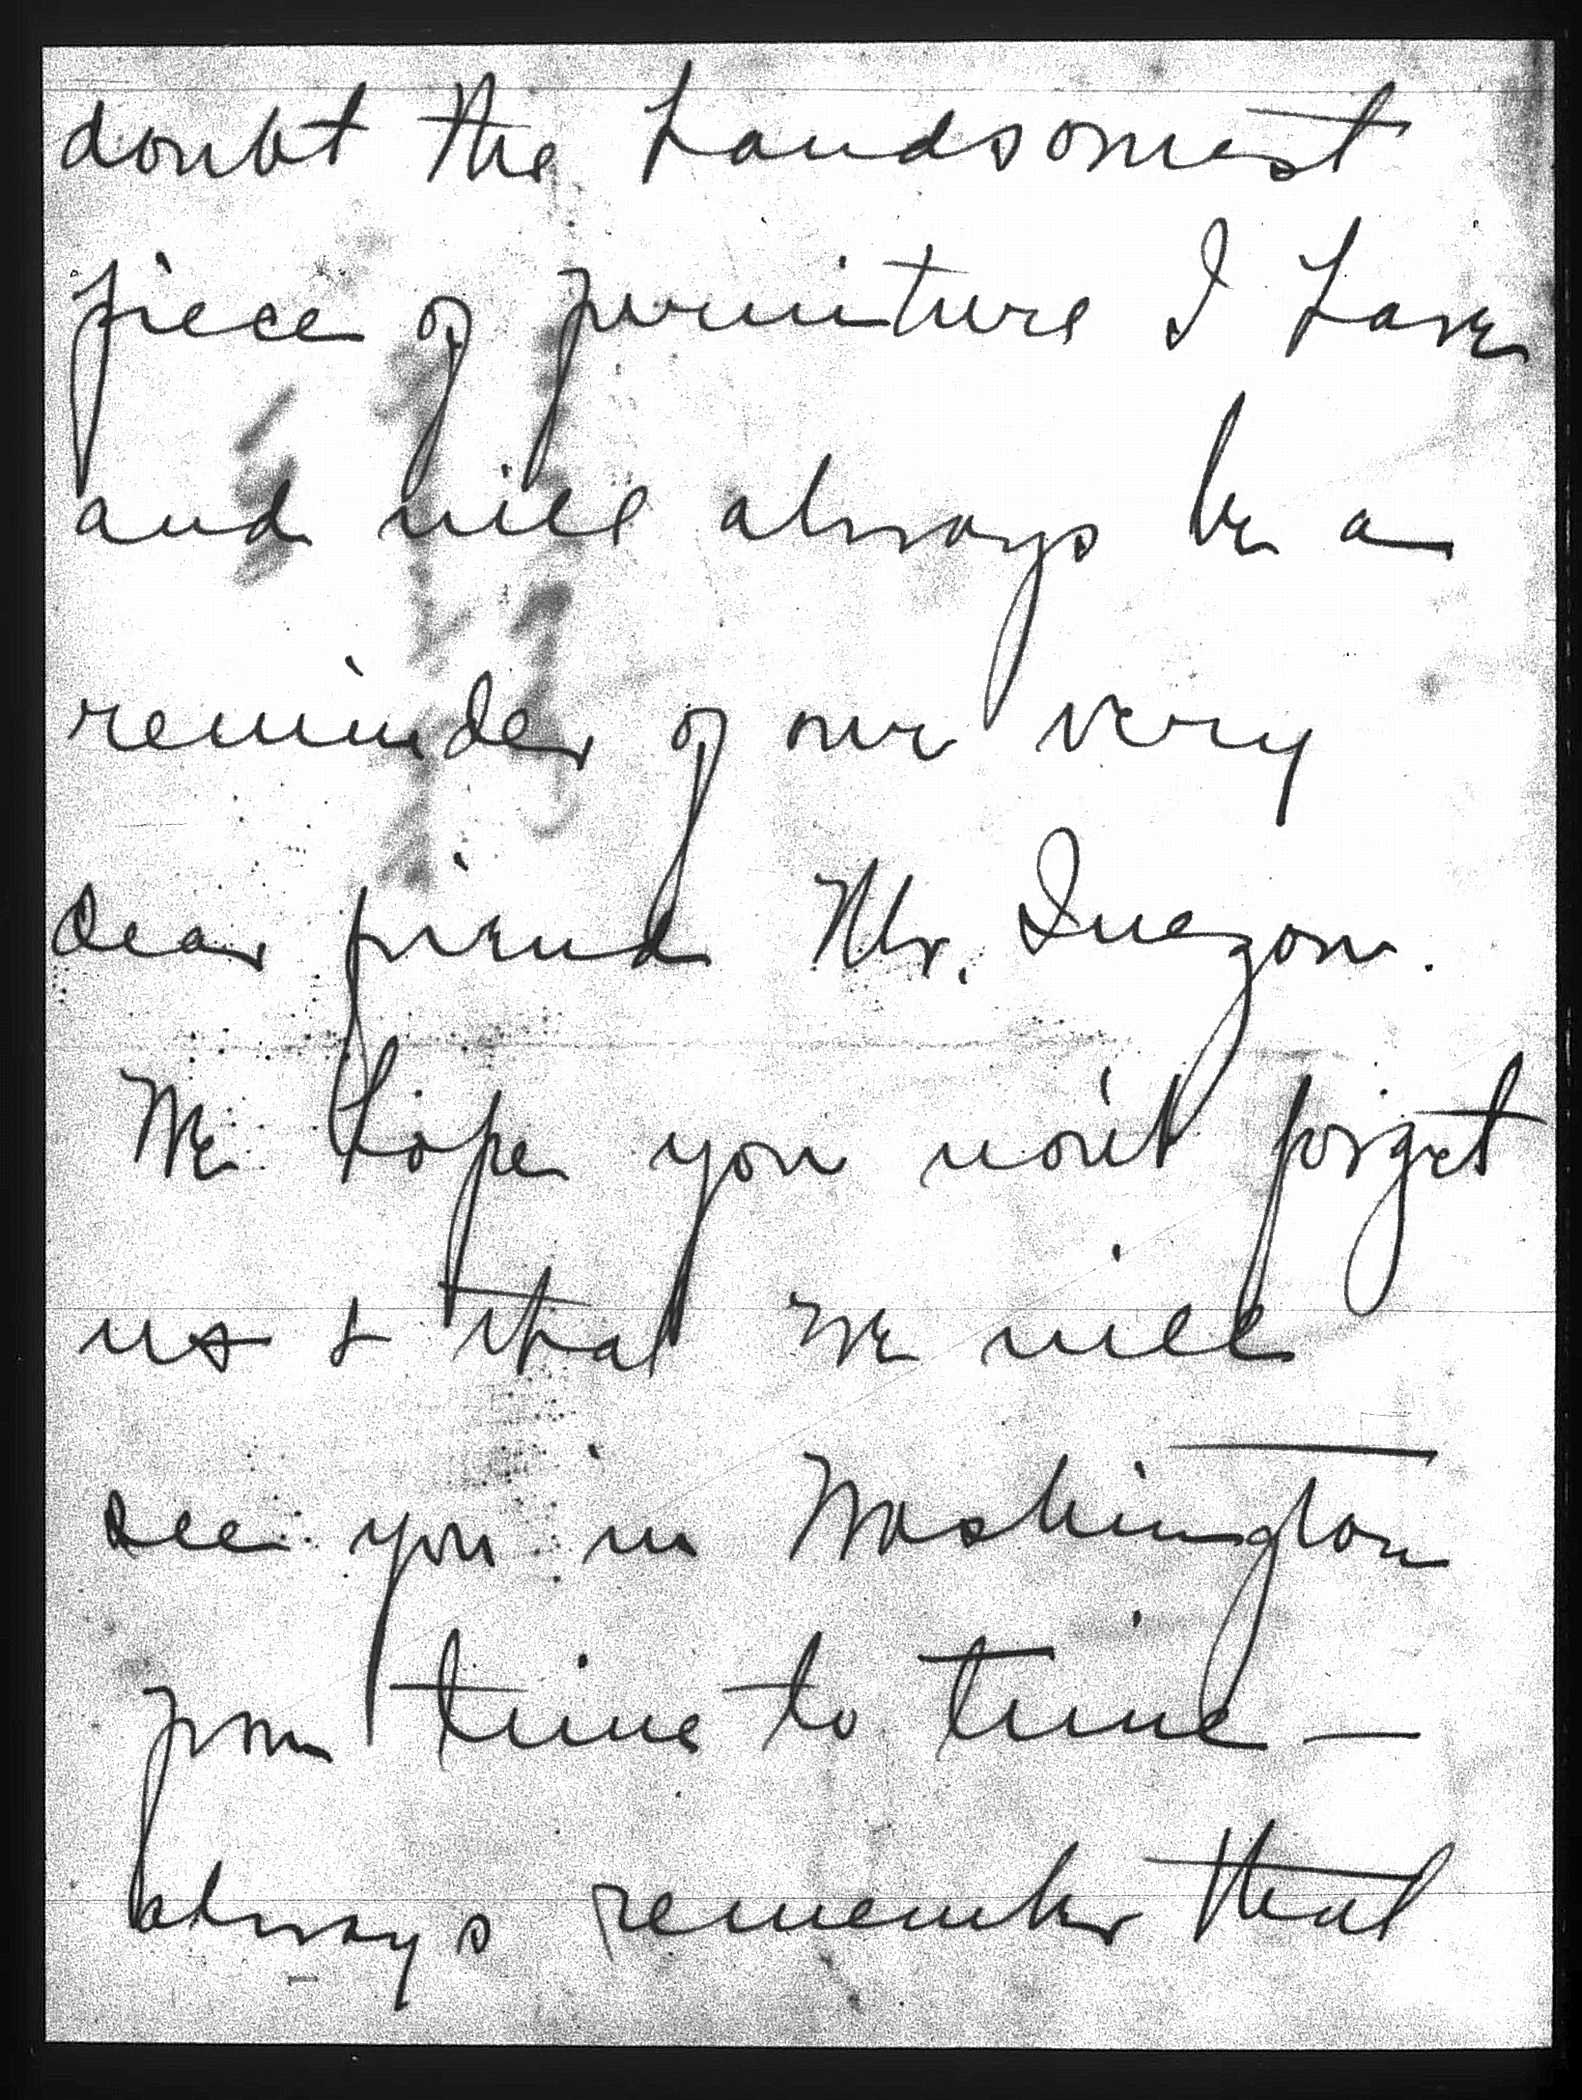 doubt the handsomest
piece of furniture I have
and will always be a
reminder of our very
dear friend Mr. Quezon.
We hope you won't forget
us & that we will
see you in Washington
from time to time —
always remember that